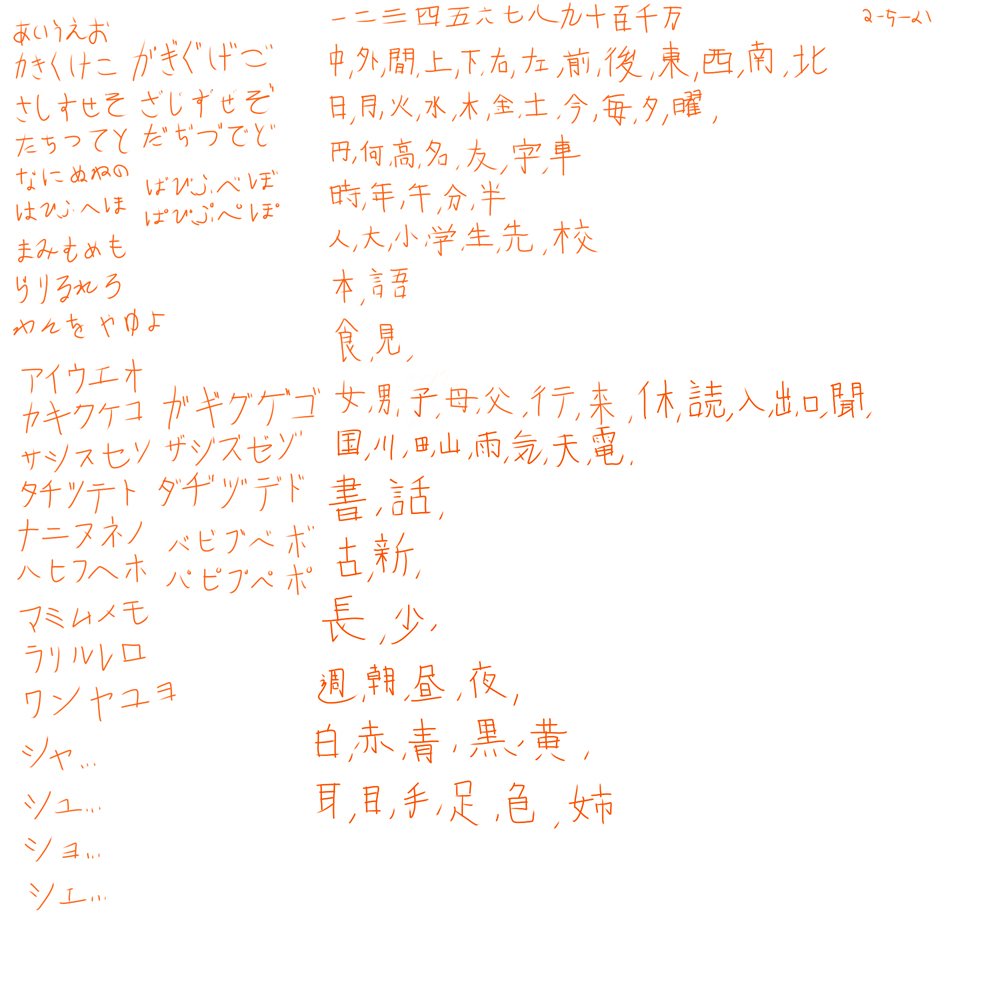 一二三四五六七八九十百千万
2-5-21
あいうえお
かきくけこ がぎぐげご
さしすせそ ざじずぜぞ
たちつてと だぢづでど
なにぬねの
はひふへほ ばびぶべぼ
ぱぴぷぺぽ
まみむめも
らりるれろ
わんをやゆよ
中,外,間,上,下,右,左,前,後,東,西,南,北
日,月,火,水,木,金,土,今,毎,夕,曜,
円,何,高,名,友,字,車
時,年,午,分,半
人,大,小,学,生,先,校
本,語
食,見,
女,男,子,母,父,行,来,休,読,入,出,口,聞,
国,川,田,山,雨,気,天,電,
書,話,
古,新,
長,少,
週,朝,昼,夜,
白,赤,青,黒,黄,
耳,目,手,足,色,姉
アイウエオ
カキクケコ ガギグゲゴ
サシスセソ ザジズゼゾ
タチツテト ダヂヅデド
ナニヌネノ
ハヒフヘホ バビブベボ
パピプペポ
マミムメモ
ラリルレロ
ワンヤユヨ
シャ...
シュ...
ショ...
シェ...